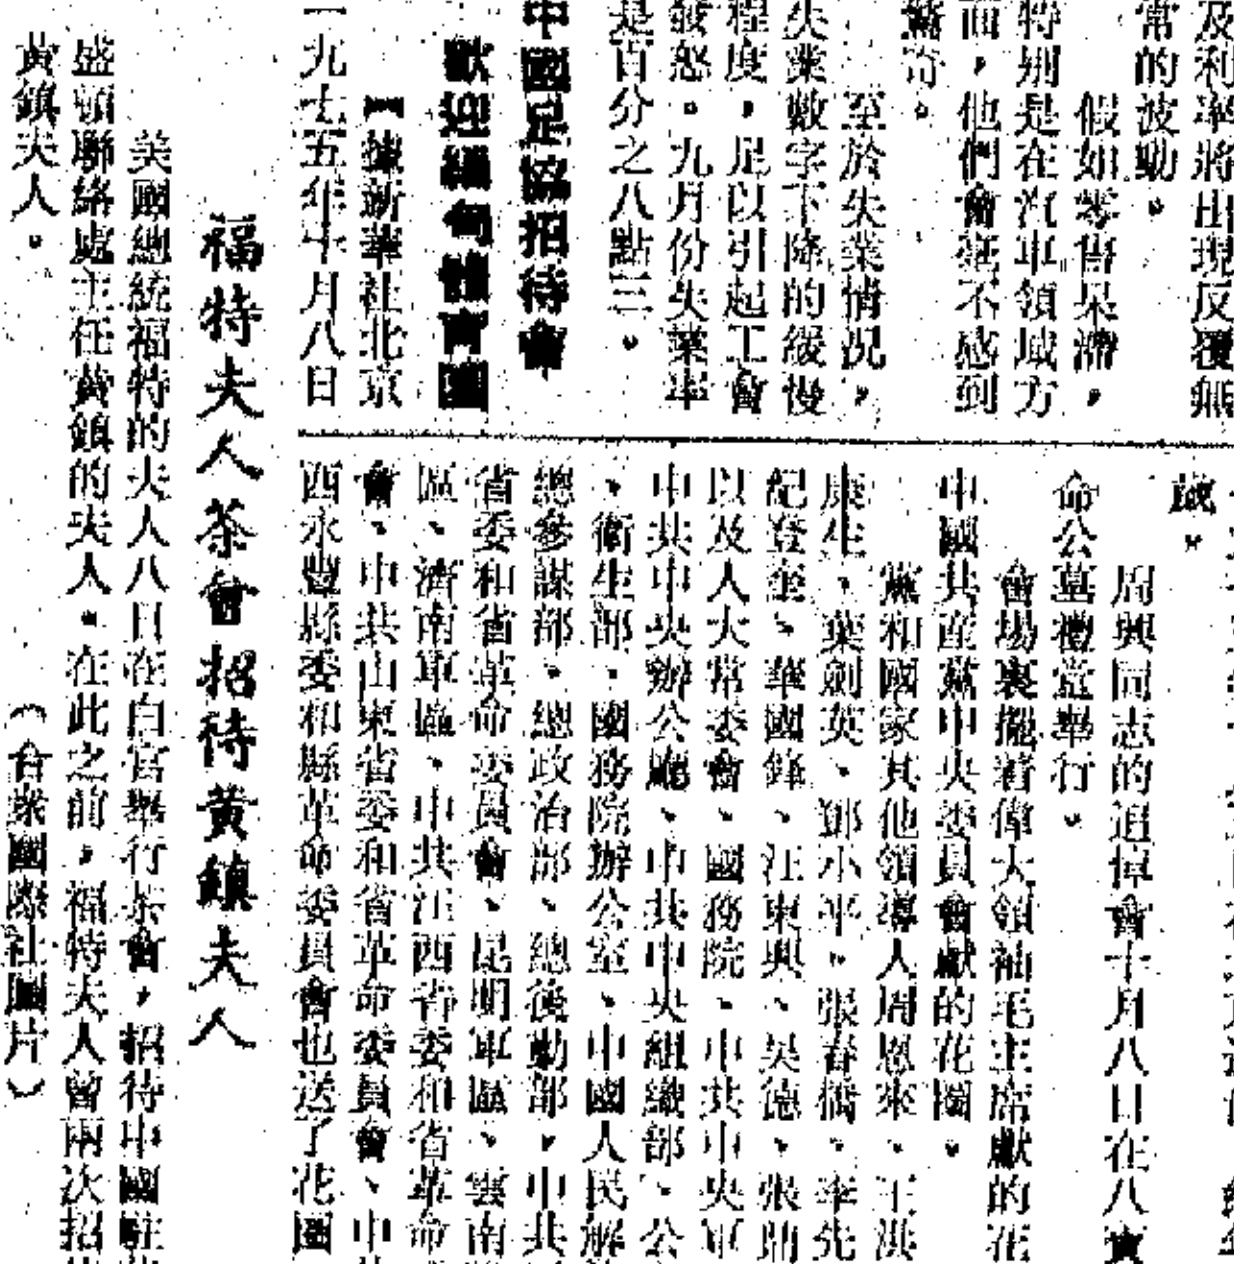 及利率將出現反覆無
常的波動。
假如零售呆滯，
特別是在汽車領域方
面，他們會毫不感到
驚奇。
至於失業情況，
失業數字下降的緩慢
程度，足以引起工會
發怒。九月份失業率
是百分之八點三。
中國足協招待會
歡迎緬甸體育團
【據新華社北京
一九七五年十月八日
歲。
周興同志的追悼會十月八日在八寶
命公墓禮堂舉行。
會場裏擺着偉大領袖毛主席獻的花
中國共産黨中央委員會獻的花圈。
黨和國家其他領導人周恩來、王洪
康生、葉劍英、鄧小平、張春橋、李先
紀登奎、華國鋒、汪東興、吳德、張鼎
以及人大常委會、國務院、中共中央軍
中共中央辦公廳、中共中央組織部、公
、衛生部、國務院辦公室、中國人民解
總參謀部、總政治部、總後勤部，中共
省委和省革命委員會、昆明軍區、雲南
區、濟南軍區、中共江西省委和省革命
會、中共山東省委和省革命委員會、中
西永豐縣委和縣革命委員會也送了花圈
福特夫人茶會招待黃鎮夫人
美國總統福特的夫人八日在白宮舉行茶會，招待中國駐
盛頓聯絡處主任黃鎮的夫人。在此之前，福特夫人曾兩次招
黃鎮夫人。
（合衆國際社圖片）